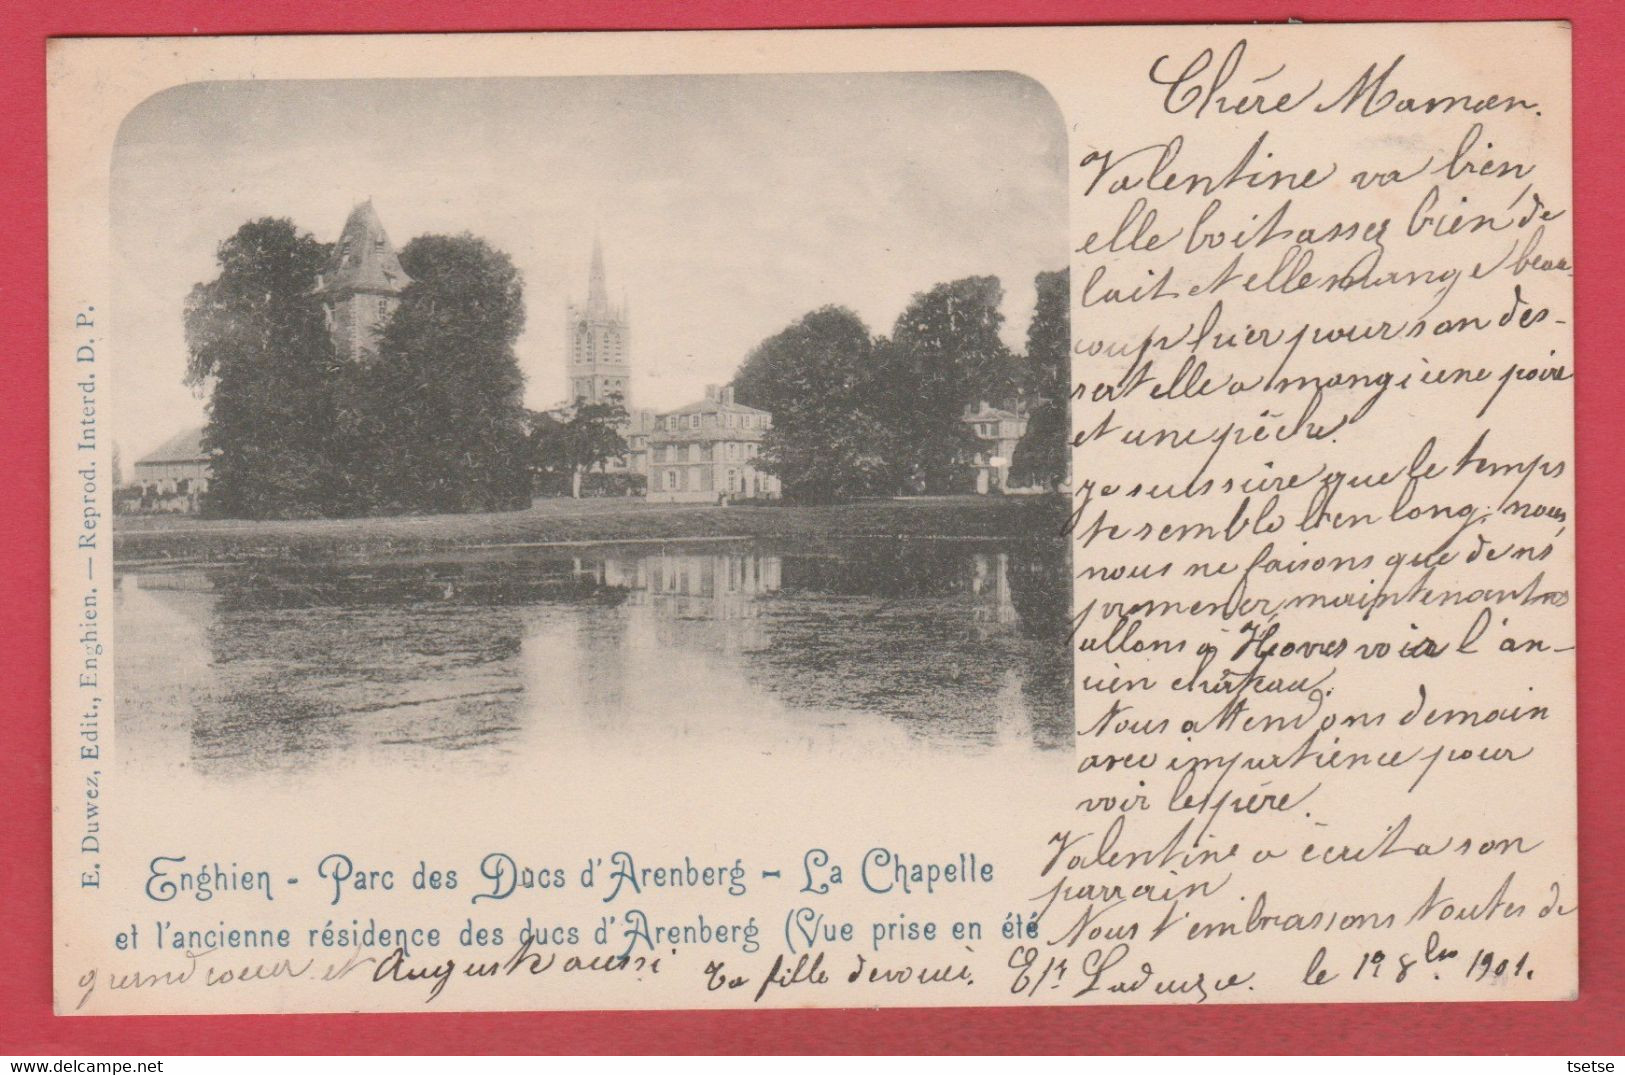 Chère Maman.
Valentine va bien,
elle boit assez bien de
lait et elle mange beau-
coup hier pour son des-
sert elle a mangé une poire
et une pêche.
je suis sûre que le temps
te semble bien long; nous,
nous ne faisons que de ns
promener, maintenant ns
allons à Hoves voir l'an-
cien château.
Nous attendons demain
avec impatience pour
voir le père.
Valentine a écrit a son
parrain.
Nous t'embrassons toutes de
grand coeur et Auguste aussi Ta fille devoué. le 19 8bre 1901.
Enghien - Parc des Ducs d'Arenberg - La Chapelle
et l'ancienne résidence des ducs d'Arenberg (Vue prise en été
E. Duwez, Edit., Enghien. — Reprod. Interd. D. P.
tsetse